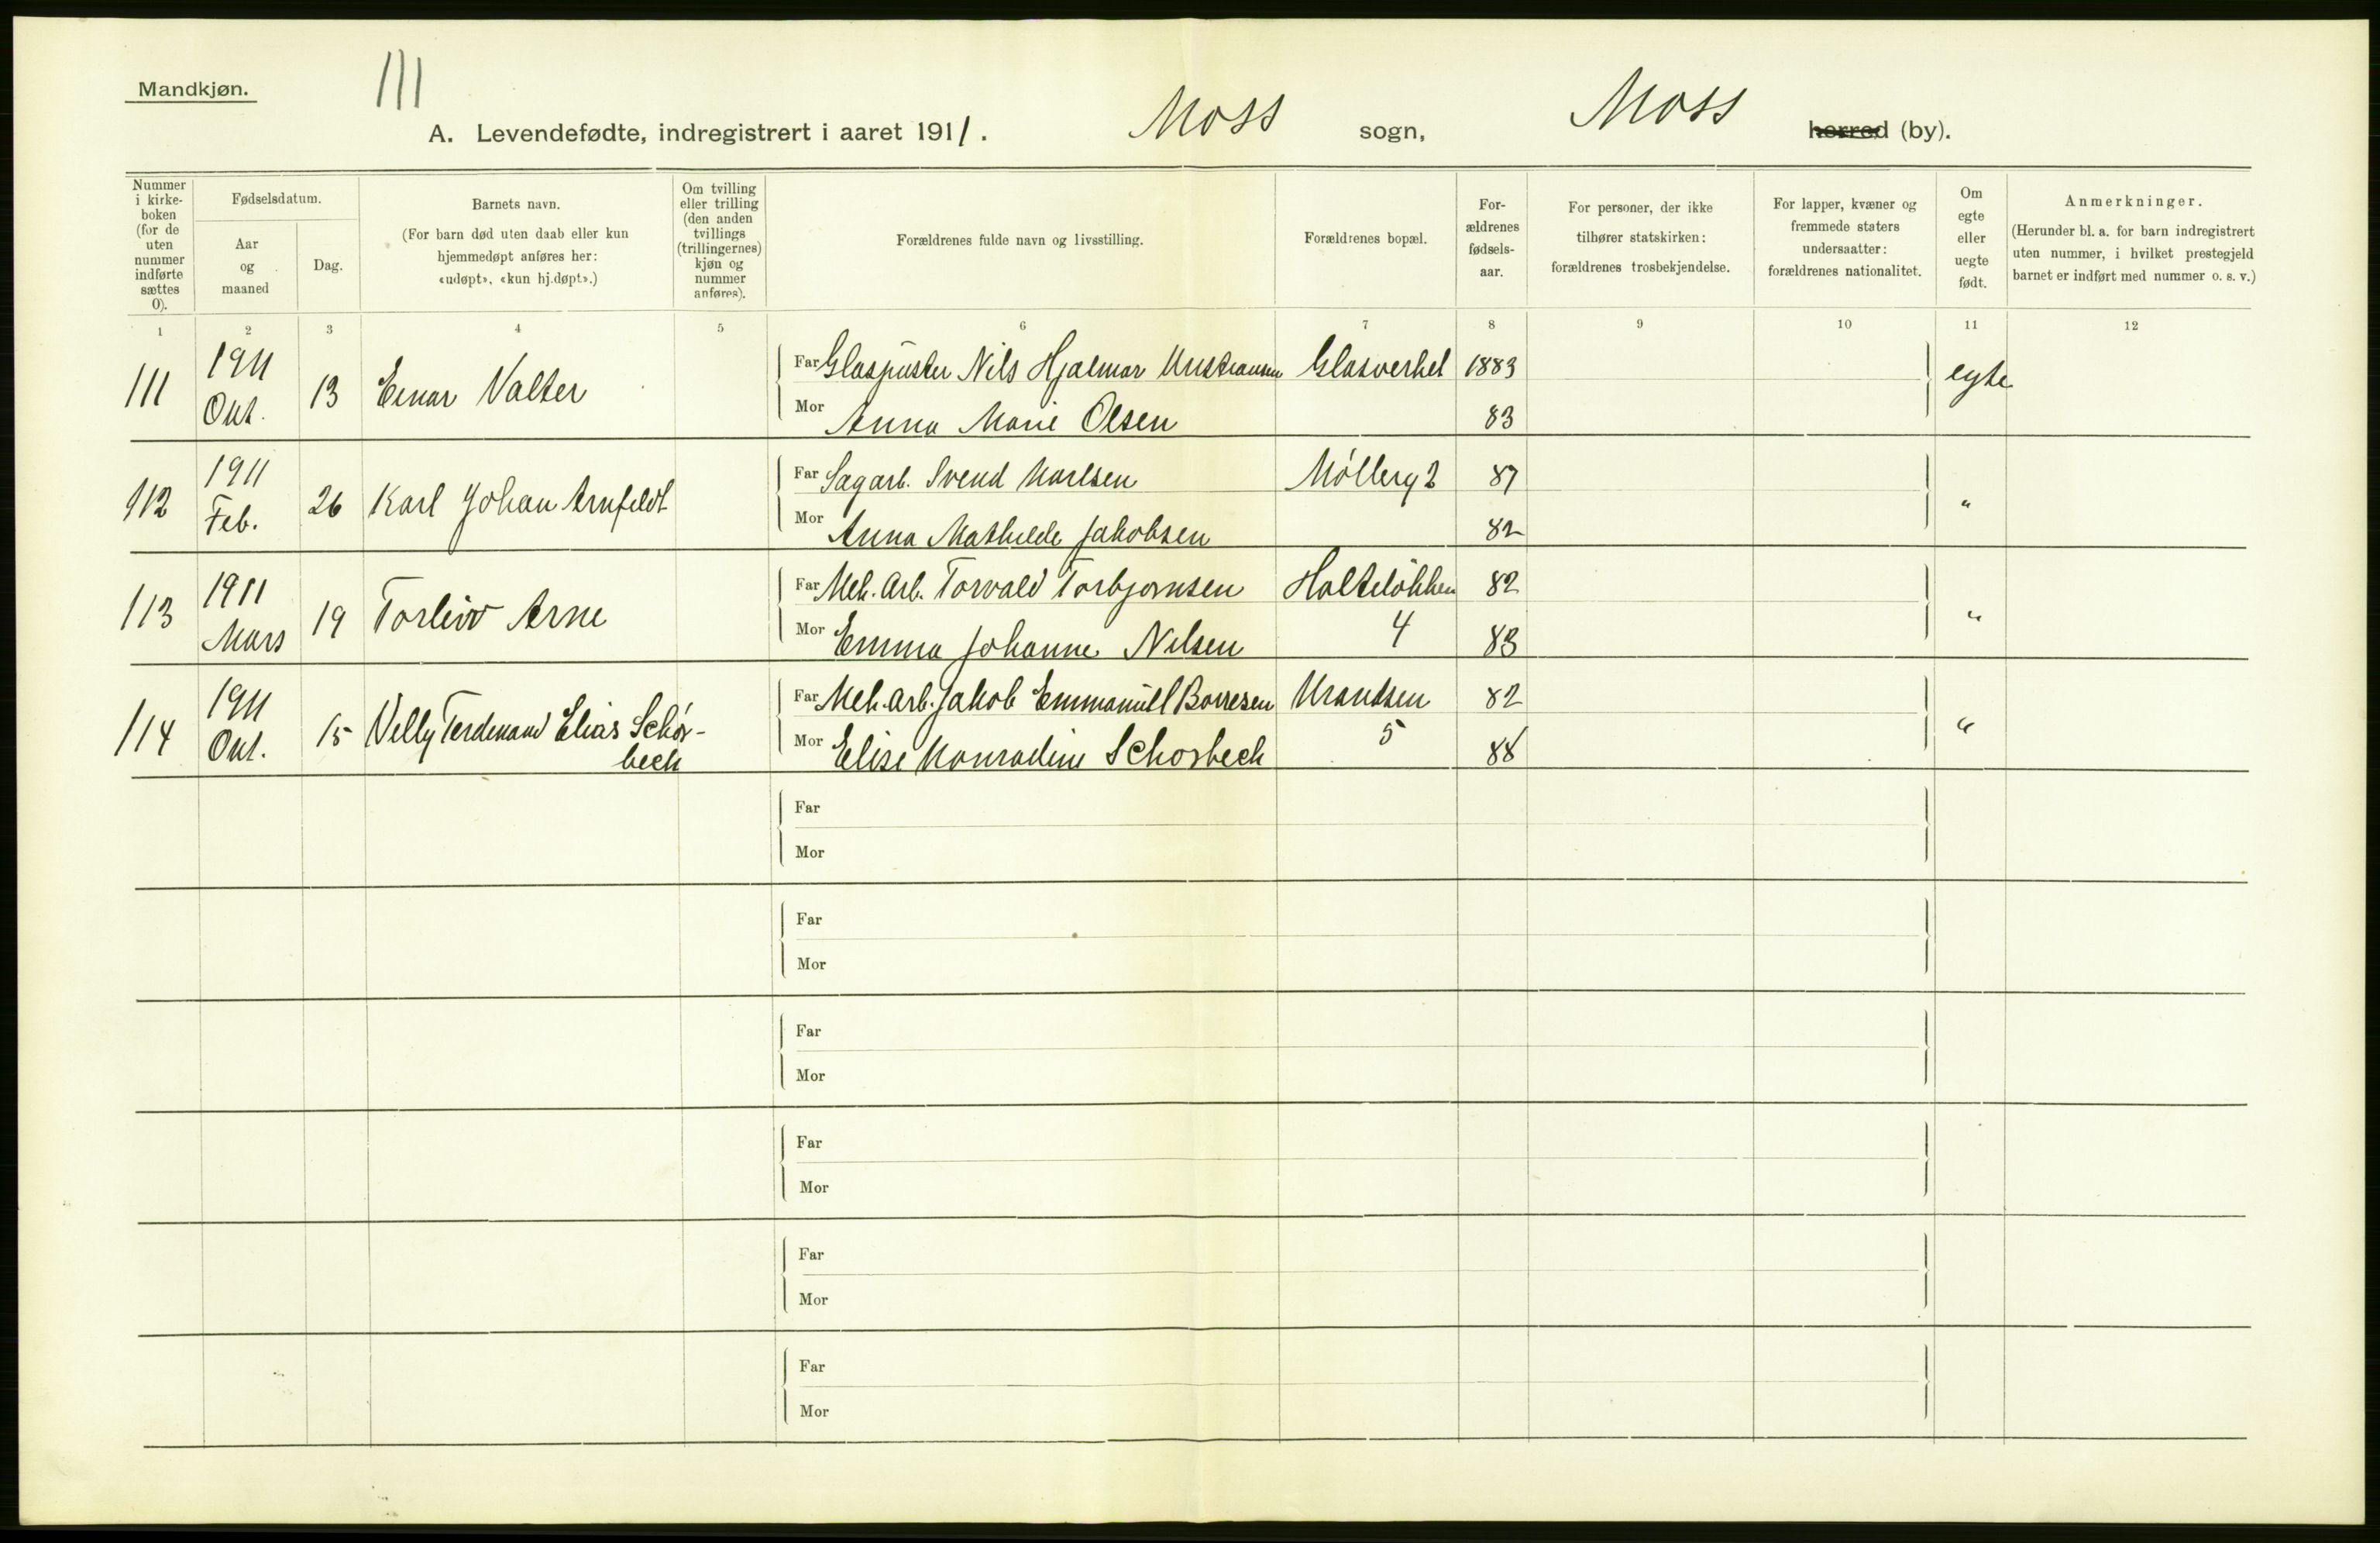 Mandkjøn.
111
A. Levendefødte, indregistrert i aaret 1911. Moss sogn, Moss herred (by).
Nummer i kirke-boken (for de uten nummer indførte sættes 0).
Fødselsdatum.
Aar og maaned
Dag.
Barnets navn.
(For barn død uten daab eller kun hjemmedøpt anføres her: «udøpt», «kun hj.døpt».)
Om tvilling eller trilling (den anden tvillings (trillingernes) kjøn og nummer anføres).
Forældrenes fulde navn og livsstilling.
Forældrenes bopæl.
For-ældrenes fødsels-aar.
For personer, der ikke tilhører statskirken: forældrenes trosbekjendelse.
For lapper, kvæner og fremmede staters undersaatter: forældrenes nationalitet.
Om egte eller uegte født.
Anmerkninger.
(Herunder bl. a. for barn indregistrert uten nummer, i hvilket prestegjeld barnet er indført med nummer o. s. v.)
1 2 3 4 5 6 7 8 9 10 11 12
111 1911 Okt. 13 Einar Valter
Far Glaspuster Nils Hjalmar Kristiansen Glasverket 1883 egte
Mor Anna Marie Olsen 83
112 1911 Feb. 26 Karl Johan Arnfeldt
Far Sagarb. Svend Karlsen Møllerg 2 87 "
Mor Anna Mathilde Jakobsen 82
113 1911 Mars 19 Torleiv Arne
Far Mek. Arb. Torvald Torbjørnsen Halteløkken 82 "
Mor Emma Johanne Nilsen 4 83
114 1911 Okt. 15 Villy Ferdinand Elias Schør-
beck
Far Mek. arb. Jakob Emmanuel Borresen Kransen 82 "
Mor Elise Konradine Schorbeck 5 88
Far
Mor
Far
Mor
Far
Mor
Far
Mor
Far
Mor
Far
Mor